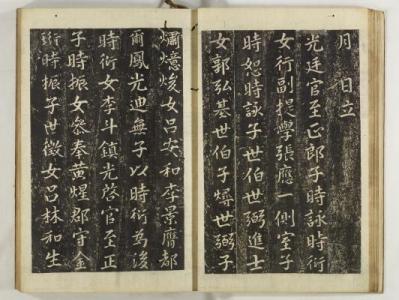 月 日立
光廷官至正郎子時詠時衍
女行副提學張應一側室子
時恕時詠子世伯世弼進士
女郭弘基世伯子爀世弼子
爀燱焌女呂安和李景膺都
爾鳳光迪無子以時衍為後
時衍女李斗鎮光啓官至正
子時振女參奉黃煋郡守金
珩時振子世徵女呂林和生